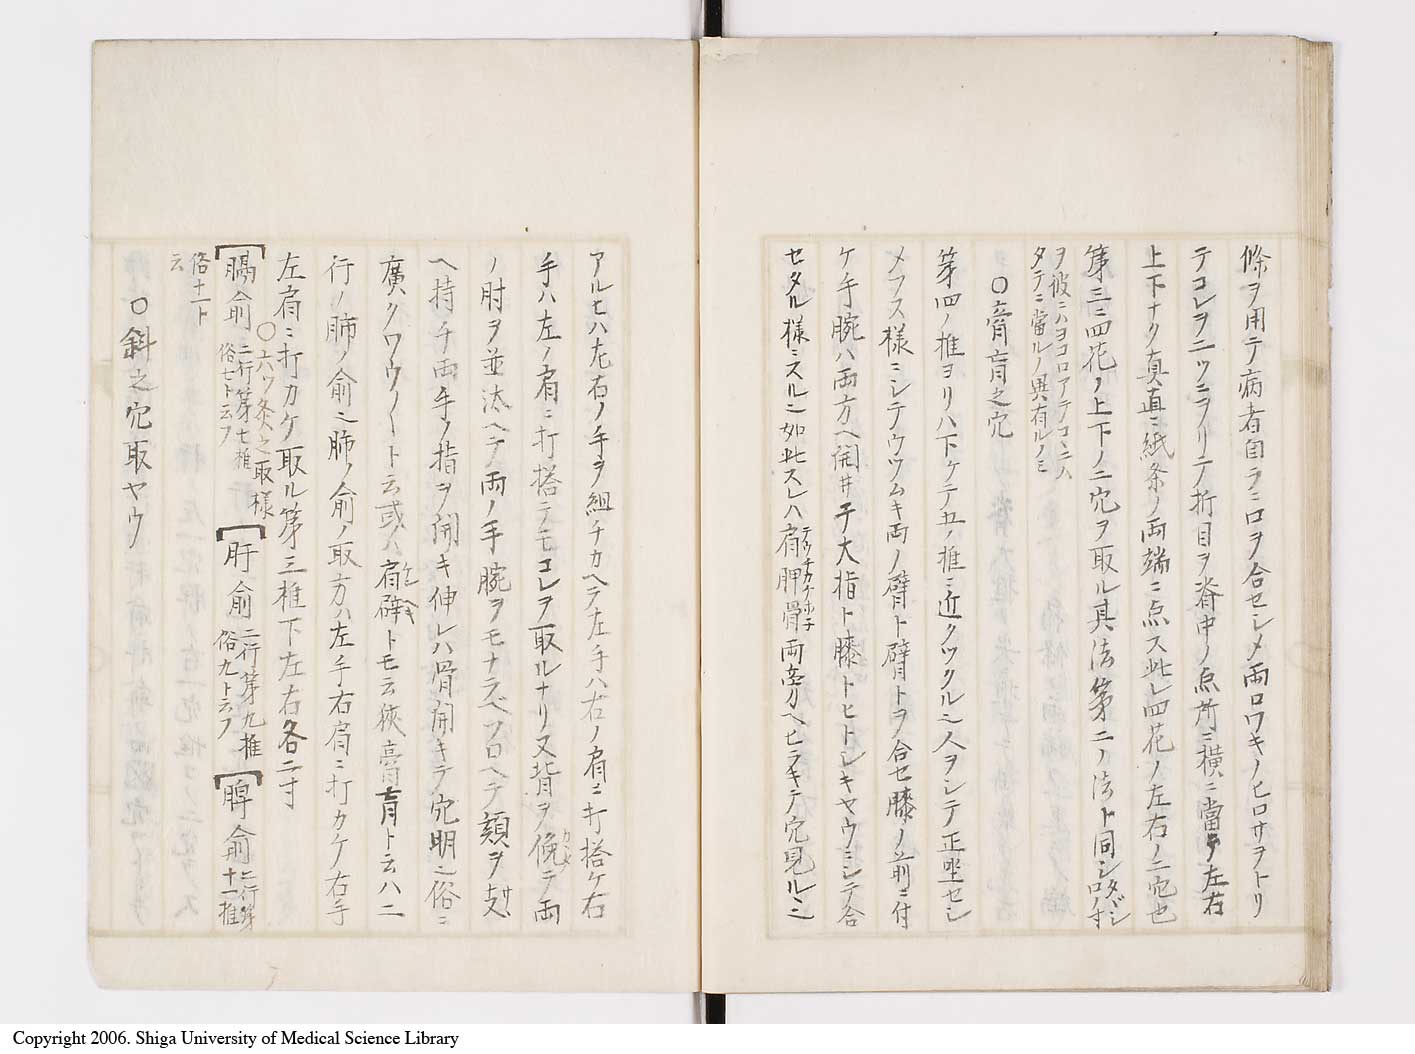 條ヲ用テ病者自ラニ口ヲ合セシメ両口ワキノヒロサヲトリ
テコレヲ二ツニヲリテ折目ヲ脊中ノ点所ニ横ニ當テ左右
上下ナク真直ニ紙条ノ両端ニ点ス此レ四花ノ左右ノ二穴也
第三ニ四花ノ上下ノ二穴ヲ取ル其法第二ノ法ト同シタヾシ口ノ寸
ヲ彼ニハヨコロアテコヽニハ
タテニ當ルノ異有ルノミ
○膏肓之穴
第四ノ椎ヨリハ下ケテ五ノ椎ニ近クツクル也人ヲシテ正坐セシ
メフス様ニシテウツムキ両ノ臂ト臂トヲ合セ膝ノ前ニ付
ケ手腕ハ両方ヘ開井子大指ト膝トヒトシキヤウミシテ合
セタル様ニスル也如此スレハ肩胛骨両旁ヘヒラキテ穴見ルヽ也
アルヒハ左右ノ手ヲ組チカヘテ左手ハ右ノ肩ニ打搭ケ右
手ハ左ノ肩ニ打搭テモコレヲ取ルナリ又背ヲ俛テ両
ノ肘ヲ並ヘテ両ノ手腕ヲモナラベソロヘテ頬ヲ支
ヘ持チ両手ノ指ヲ開キ伸レハ骨開キテ穴明也俗ニ
廣クワウノト云或ハ肩癖トモ云狹膏肓ト云ハ二
行ノ肺ノ俞也肺ノ俞ノ取方ハ左手右肩ニ打カケ右手
左肩ニ打カケ取ル第三椎下左右各二寸
○六ツ灸之取様
膈俞 二行第七椎 俗七ト云フ 肝俞 二行第九椎 俗九ト云フ 脾俞 二行第十一椎
俗十一ト云
○斜之穴取ヤウ
Copyright 2006. Shiga University of Medical Science Library